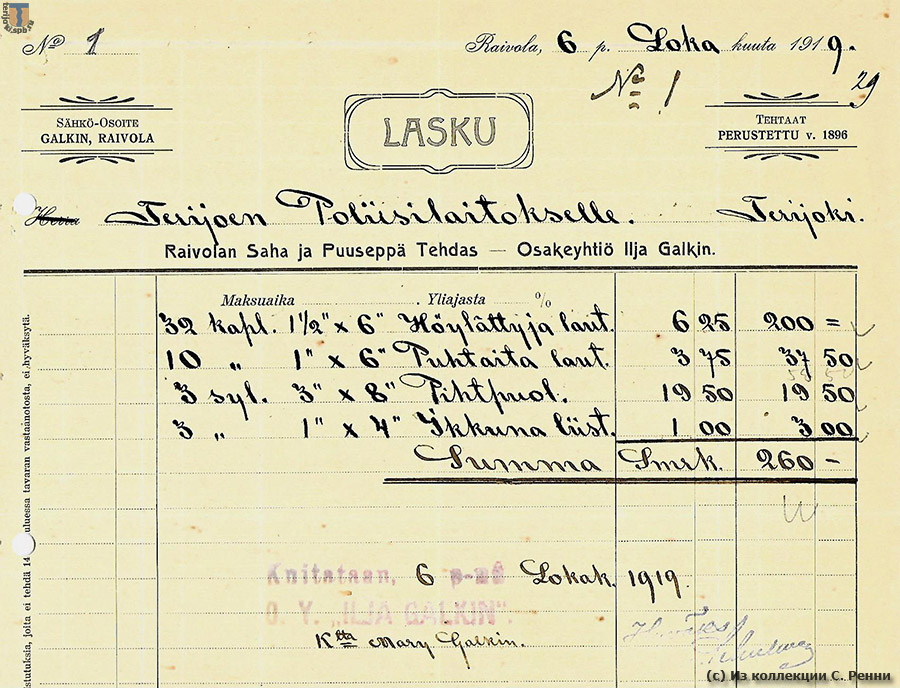 terijoki.spb.ru
Nº 1
Raivola, 6 p. Loka kuuta 1919.
Nº 1
29
SÄHKÖ-OSOITE
GALKIN, RAIVOLA
LASKU
TEHTAAT
PERUSTETTU v. 1896
Herra Terijoen Poliisilaitokselle. Terijoki.
Raivolan Saha ja Puuseppä Tehdas — Osakeyhtiö Ilja Galkin.
Maksuaika . Yliajasta %
32 kapl. 1½" x 6" Höylättyjä laut. 6 25 200 =
10 „ 1" x 6" Puhtaita laut. 3 75 37 50
3 syl. 3" x 8" Pihtpuol. 19 50 19 50
3 „ 1" x 4" Ikkuna liist. 1 00 3 00
Summa Smrk. 260 -
Kuitataan, 6 p:nä Lokak. 1919.
O. Y. „ILJA GALKIN".
Ktta Mary Galkin.
istutuksia, joita ei tehdä 14 kuluessa tavaran vastaanotosta, ei hyväksytä.
(c) Из коллекции С. Ренни